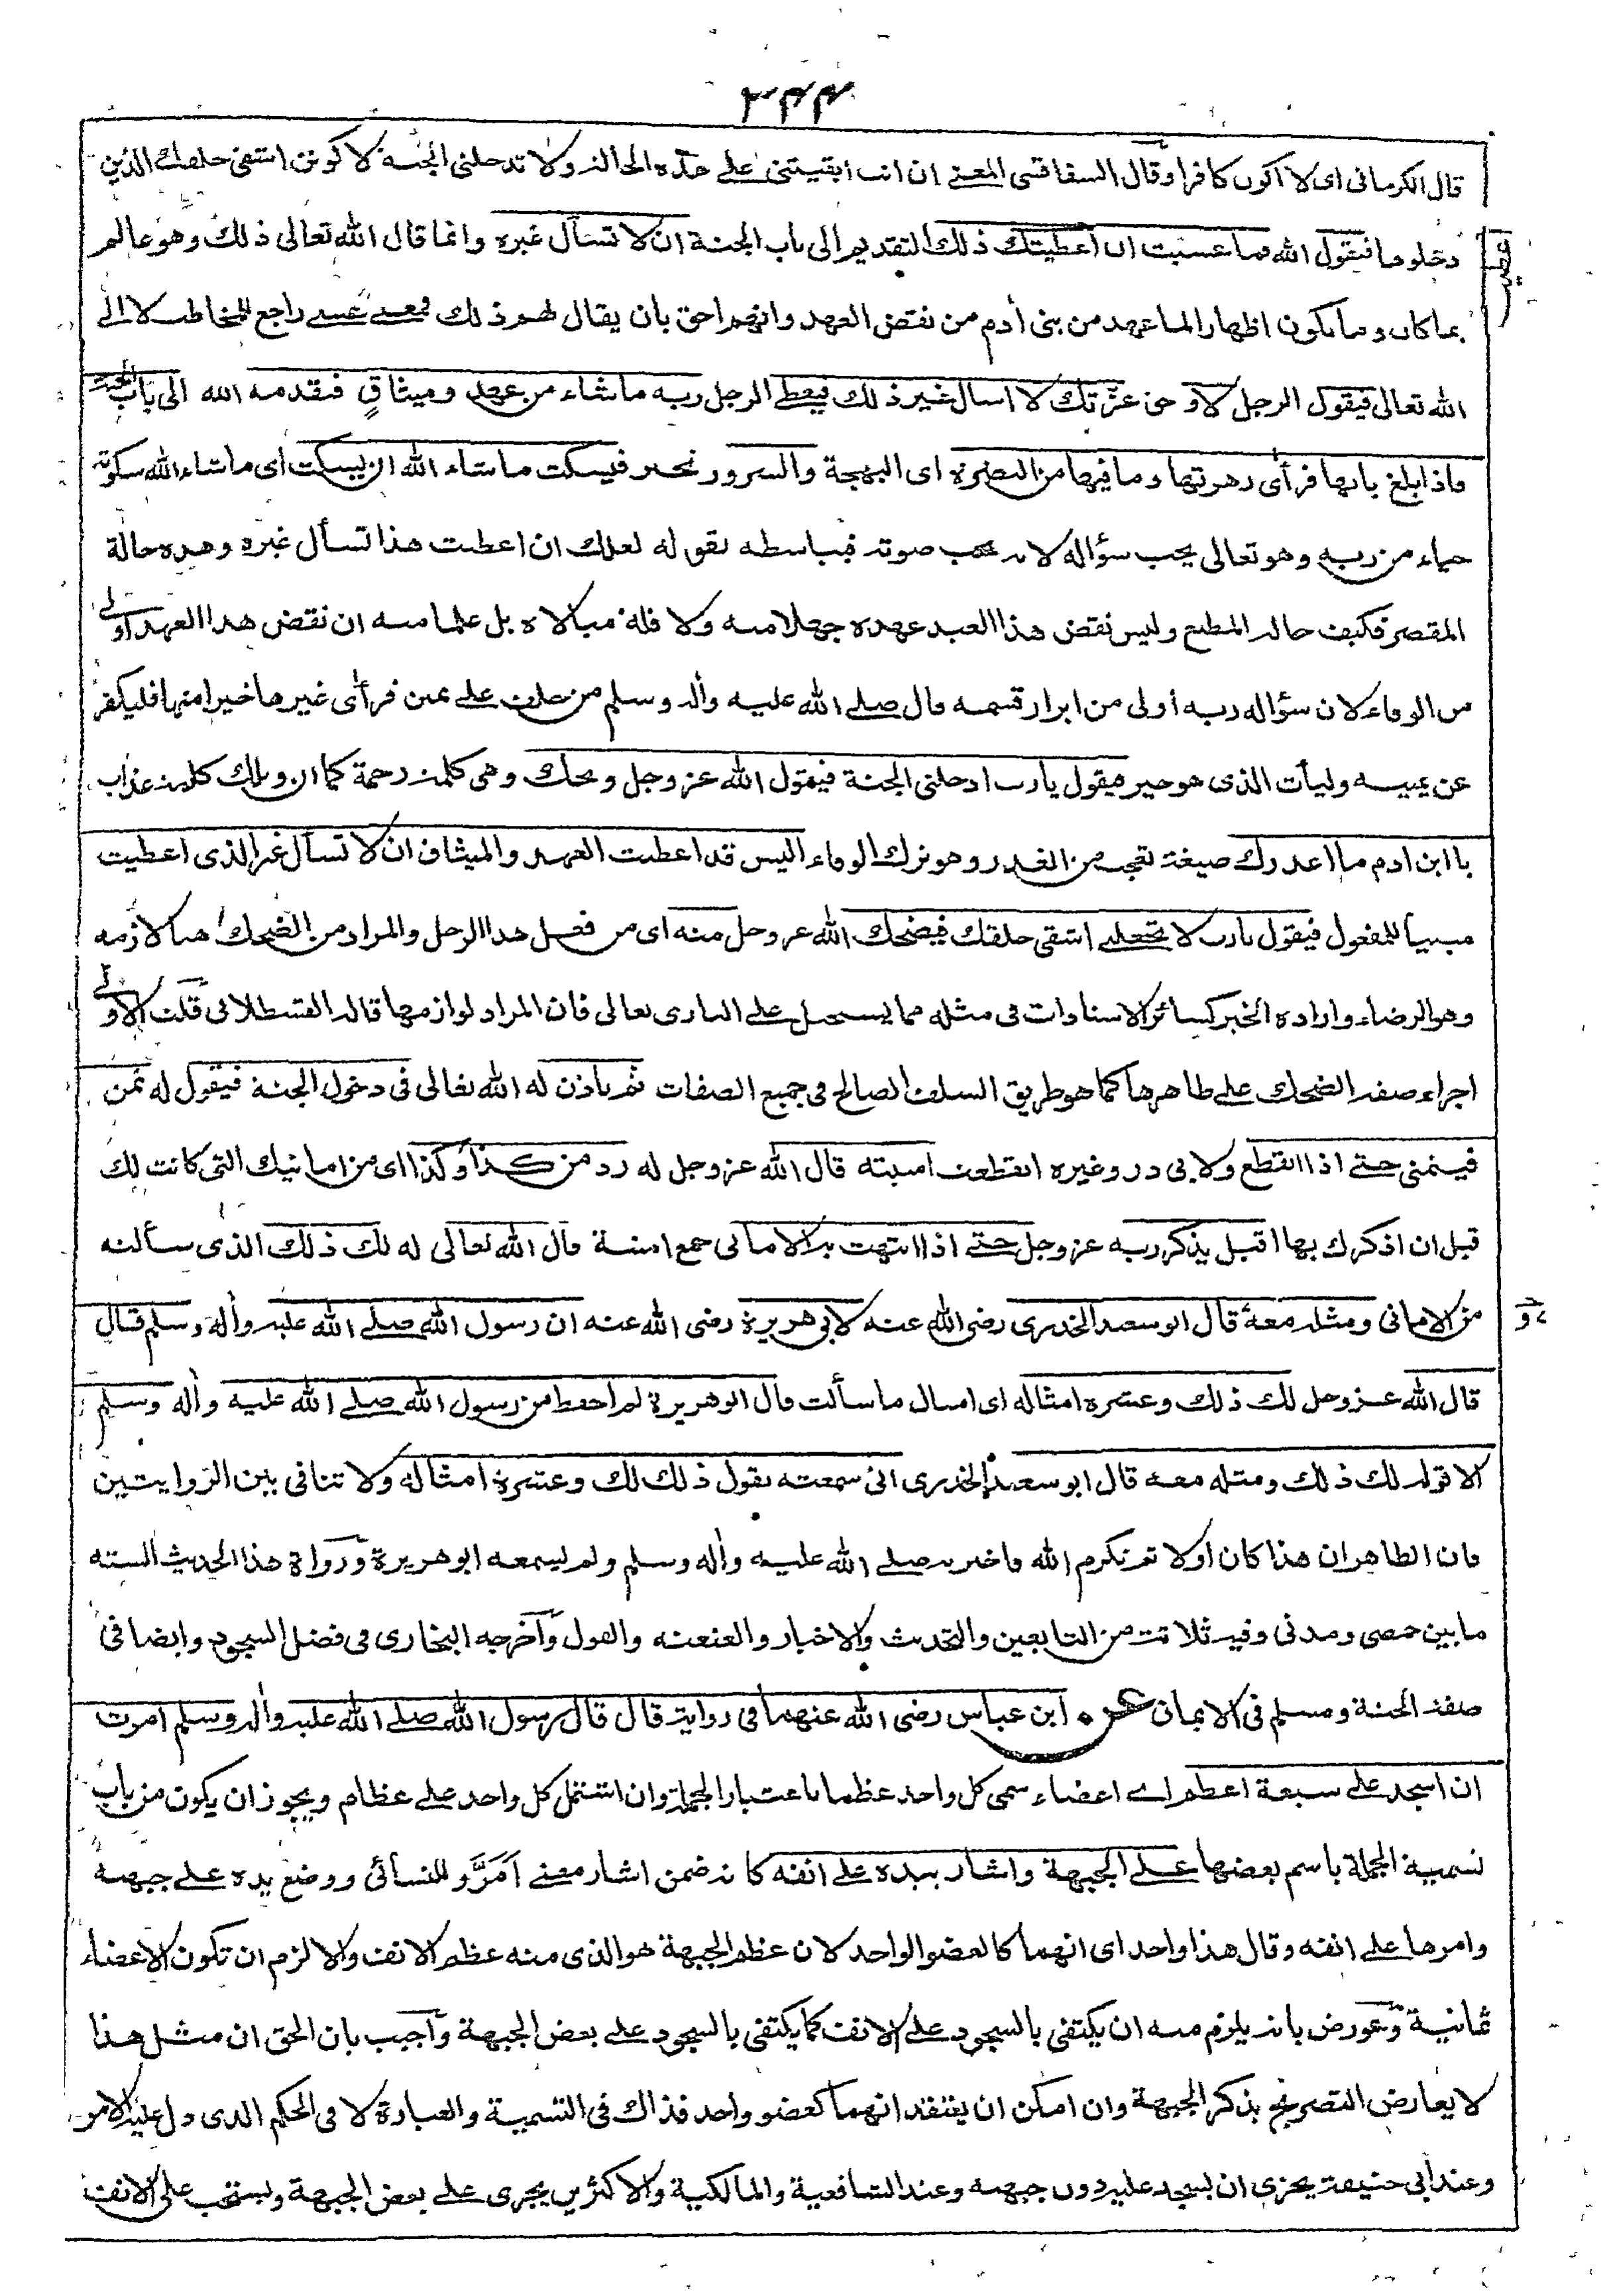 ٣٤٤
قال الكرمانى اى لا اكون كافرا وقال السفاقسى المعنى ان انت ابقيتنى على هذه الحالة ولا تدخلنى الجنة لاكونن اشقى خلقك الذين
دخلوها فيقول الله فما عسيت ان اعطيتك ذلك التقديم الى باب الجنة ان لا تسأل غيره وانما قال الله تعالى ذلك وهو عالم
بما كان وما يكون اظهارا لما عهد من بنى أدم من نقض العهد وانهم احق بان يقال لهم ذلك فمعنى عسى راجع للمخاطب لا الى
الله تعالى فيقول الرجل لا وحق عزّتك لا اسال غير ذلك فيعطى الرجل ربه ماشاء من عهد وميثاقٍ فيقدمه الله الى باب الجنة
فاذا بلغ بابها فرأى زهرتها وما فيها من النضرة اى البهجة والسرور تحير فيسكت ماشاء الله ان يسكت اى ماشاء الله سكوته
حياء من ربه وهو تعالى يحب سؤاله لانه يحب صوته فيباسطه بقوله لعلك ان اعطيت هذا تسأل غيره وهذه حالة
المقصر فكيف حالة المطيع وليس نقض هذا العبد عهده جهلا منه ولا قلة مبالاة بل علما منه ان نقض هذا العهد اولى
من الوفاء لان سؤاله ربه أولى من ابرار قسمه قال صلى الله عليه وأله وسلم من حلف على يمين فرأى غيرها خيرا منها فليكفر
عن يمينه وليأت الذى هو خير فيقول يارب ادخلنى الجنة فيقول الله عز وجل ويحك وهى كلمة رحمة كما ان ويلك كلمة عذاب
يا ابن ادم ما اغدرك صيغة تعجب من الغدر وهو ترك الوفاء اليس قد اعطيت العهد والميثاق ان لا تسأل غير الذى اعطيت
مبنيا للمفعول فيقول يارب لا تجعلنى اشقى خلقك فيضحك الله عز وجل منه اى من فعل هذا الرجل والمراد من الضحك هنا لازمه
وهو الرضاء وارادة الخير كسائر الاسنادات فى مثله مما يستحيل على البارى تعالى فان المراد لوازمها قاله القسطلانى قلت الاولى
اجراء صفة الضحك على ظاهرها كما هو طريق السلف الصالح فى جميع الصفات ثم يأذن له الله تعالى فى دخول الجنة فيقول له تمن
فيتمنى حتى اذا انقطع ولابى ذر وغيره انقطعت امنيته قال الله عز وجل له زد من كذا وكذا اى من امانيك التى كانت لك
قبل ان اذكرك بها اقبل يذكر ربه عز وجل حتى اذا انتهت به الامانى جمع امنية قال الله تعالى له لك ذلك الذى سألته
من الامانى ومثله معه قال ابو سعيد الخدرى رضى الله عنه لابى هريرة رضى الله عنه ان رسول الله صلى الله عليه وأله وسلم قال
قال الله عز وجل لك ذلك وعشرة امثاله اى امثال ما سألت قال ابو هريرة لم احفظ من رسول الله صلى الله عليه وأله وسلم
الا قوله لك ذلك ومثله معه قال ابو سعيد الخدرى انى سمعته يقول ذلك لك وعشرة امثاله ولا تنافى بين الروايتين
فان الظاهر ان هذا كان اولا ثم تكرم الله فاخبر به صلى الله عليه وأله وسلم ولم يسمعه ابو هريرة ورواة هذا الحديث الستة
ما بين حمصى ومدنى وفيه ثلاثة من التابعين والتحديث والاخبار والعنعنه والقول وأخرجه البخارى فى فضل السجود وايضا فى
صفة الجنة ومسلم فى الايمان عن ابن عباس رضى الله عنهما فى رواية قال قال رسول الله صلى الله عليه وأله وسلم امرت
ان اسجد على سبعة اعظم اى اعضاء سمى كل واحد عظما باعتبار الجملة وان اشتمل كل واحد على عظام ويجوز ان يكون من باب
تسمية الجملة باسم بعضها على الجبهة واشار بيده على انفه كانه ضمن اشار معنى اَمَرَّ وللنسائى ووضع يده على جبهته
وامرها على انفه وقال هذا واحد اى انهما كالعضو الواحد لان عظم الجبهة هو الذى منه عظم الانف والا لزم ان تكون الاعضاء
ثمانية وعورض بانه يلزم منه ان يكتفى بالسجود على الانف كما يكتفى بالسجود على بعض الجبهة وأجيب بان الحق ان مثل هذا
لا يعارض التصريح بذكر الجبهة وان امكن ان يعتقد انهما كعضو واحد فذاك فى التسمية والعبارة لا فى الحكم الذى دل عليه الامر
وعند أبى حنيفة يجزى ان يسجد عليه دون جبهته وعند الشافعية والمالكية والاكثرين يجزى على بعض الجبهة ويستحب على الانف